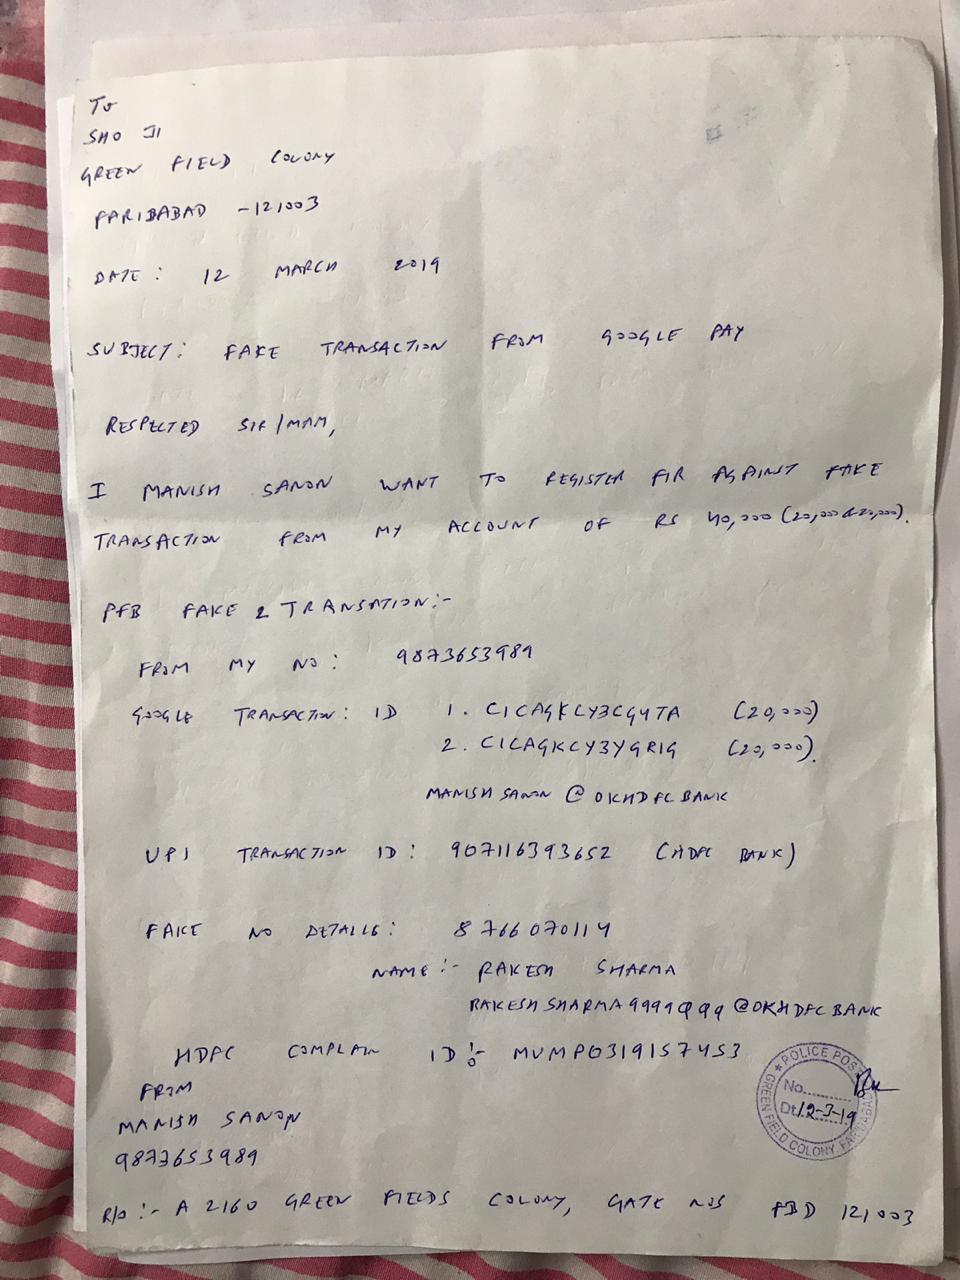 To
SHO JI
GREEN FIELD COLONY
FARIBABAD - 121003
DATE : 12 MARCH 2019
SUBJECT : FAKE TRANSACTION FROM GOOGLE PAY
RESPECTED SIR/MAM,
I MANISH SANON WANT TO REGISTER FIR AGAINST FAKE
TRANSACTION FROM MY ACCOUNT OF RS 40,000 (20,000 & 20,000).
PFB FAKE 2 TRANSATION:-
FROM MY NO : 9873653989
GOOGLE TRANSACTION : ID 1. CICAGKCY3CGYTA (20,000)
2. CICAGKCY3YGRIG (20,000).
MANISHSANON@OKHDFCBANK
UPI TRANSACTION ID : 907116393652 (HDFC BANK)
FAKE NO DETAILS : 8766070114
NAME :- RAKESH SHARMA
RAKESHSHARMA9999999@OKHDFCBANK
HDFC COMPLAIN ID :- MUMP0319157453
FROM
MANISH SANON
9873653989
R/O :- A 2160 GREEN FIELDS COLONY, GATE NO5 FBD 121003
POLICE POST
No.........
Dt. 12-3-19
GREEN FIELD COLONY, FARIDABAD